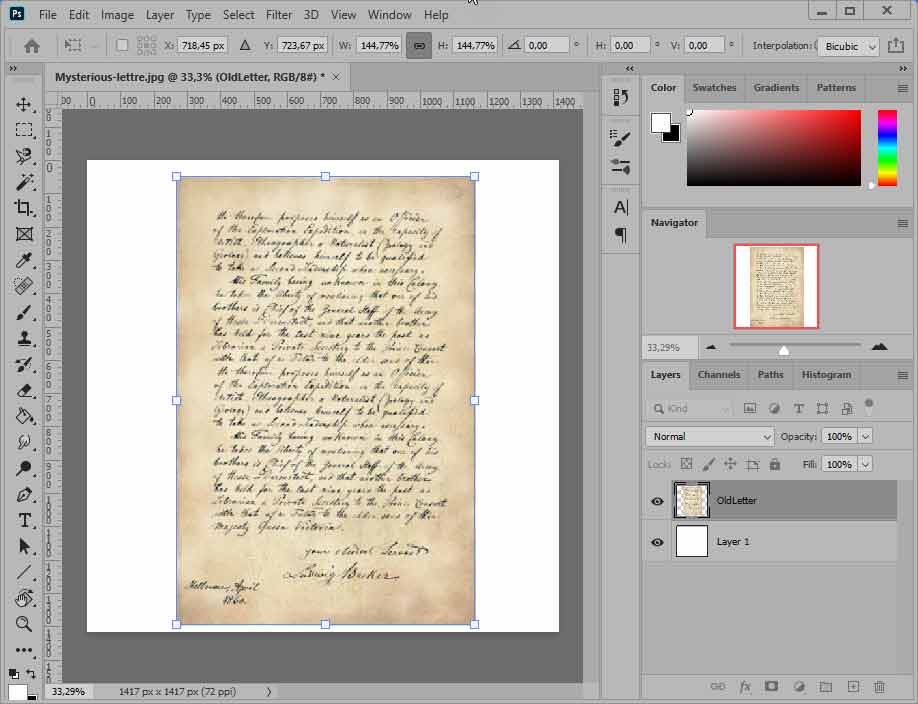 Ps File Edit Image Layer Type Select Filter 3D View Window Help
X: 718,45 px Y: 723,67 px W: 144,77% H: 144,77% 0,00 ° H: 0,00 ° V: 0,00 ° Interpolation: Bicubic
Mysterious-lettre.jpg @ 33,3% (OldLetter, RGB/8#) * ×
0 100 200 300 400 500 600 700 800 900 1000 1100 1200 1300 1400
He therefore proposes himself as an Officer
of the Exploration Expedition, in the capacity of
Artist, Photographer & Naturalist (Zoology and
Geology) and believes himself to be qualified
to take a Second Townership when necessary.
His Family being unknown in this Colony
he takes the liberty of mentioning that one of his
brothers is Chief of the General Staff of the Army
of Hesse Darmstadt, and that another brother
has held for the last nine years the post as
Librarian & Private Secretary to the Prince Consort
with that of a Tutor to the elder sons of Her
He therefore proposes himself as an Officer
of the Exploration Expedition, in the capacity of
Artist, Photographer & Naturalist (Zoology and
Geology) and believes himself to be qualified
to take a Second Townership when necessary.
His Family being unknown in this Colony
he takes the liberty of mentioning that one of his
brothers is Chief of the General Staff of the Army
of Hesse Darmstadt, and that another brother
has held for the last nine years the post as
Librarian & Private Secretary to the Prince Consort
with that of a Tutor to the elder sons of Her
Majesty Queen Victoria.
your obedient Servant
Ludwig Becker
Melbourne, April
1860.
33,29% 1417 px x 1417 px (72 ppi)
Color Swatches Gradients Patterns
Navigator
33,29%
Layers Channels Paths Histogram
Kind
Normal Opacity: 100%
Lock: Fill: 100%
OldLetter
Layer 1